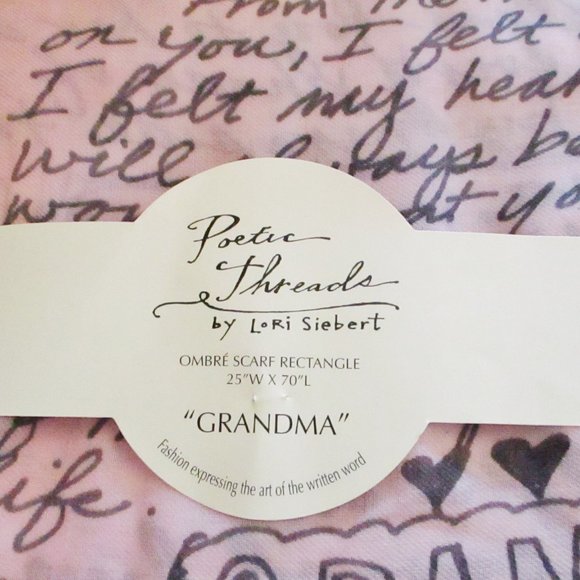 From the
on you, I felt
I felt my hear
will always be
at yo
Poetic
Threads
by Lori Siebert
OMBRÉ SCARF RECTANGLE
25"W X 70"L
"GRANDMA"
Fashion expressing the art of the written word
life.
GRAN